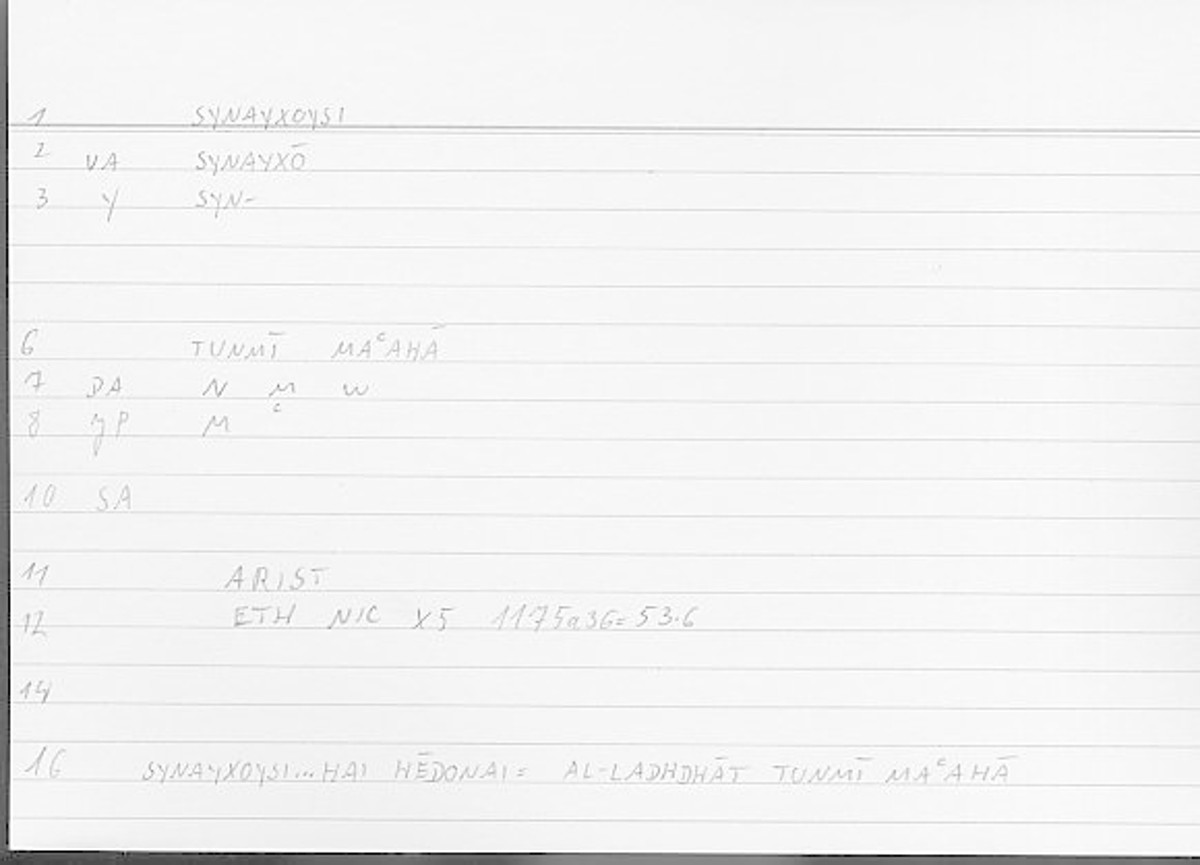 1 SYNAYXOYSI
2 VA SYNAYXŌ
3 Y SYN-
6 TUNMĪ MAᶜAHĀ
7 DA N M W
8 JP M ᶜ
10 SA
11 ARIST
12 ETH NIC X5 1175a36=53.6
14
16 SYNAYXOYSI...HAI HĒDONAI= AL-LADHDHĀT TUNMĪ MAᶜAHĀ